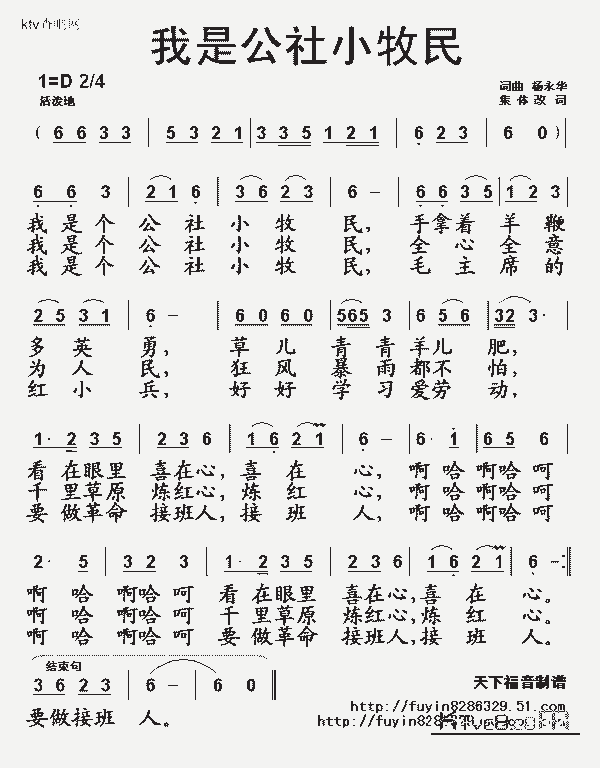 我是公社小牧民
1=D 2/4
活泼地
词曲 杨永华
集体改词
( 6 6 3 3 | 5 3 2 1 | 3 3 5 1 2 1 | 6 2 3 | 6 0 ) |
6 6 3 | 2 1 6 | 3 6 2 3 | 6 - | 6 6 3 5 | 1 2 3 |
我是个 公社 小牧 民, 手拿着 羊鞭
我是个 公社 小牧 民, 全心全意
我是个 公社 小牧 民, 毛主席的
2 5 3 1 | 6 - | 6 0 6 0 | 565 3 | 6 5 6 | 32 3· |
多英 勇, 草儿 青青 羊儿 肥,
为人 民, 狂风 暴雨 都不 怕,
红小 兵, 好好 学习 爱劳 动,
1· 2 3 5 | 2 3 6 | 1 6 2 1 | 6 - | 6· 1 | 6 5 6 |
看在眼里 喜在心, 喜在 心, 啊哈 啊哈呵
千里草原 炼红心, 炼红 心, 啊哈 啊哈呵
要做革命 接班人, 接班 人, 啊哈 啊哈呵
2· 5 | 3 2 3 | 1· 2 3 5 | 2 3 6 | 1 6 2 1 | 6 - :||
啊哈 啊哈呵 看在眼里 喜在心, 喜在 心。
啊哈 啊哈呵 千里草原 炼红心, 炼红 心。
啊哈 啊哈呵 要做革命 接班人, 接班 人。
结束句
3 6 2 3 | 6 - | 6 0 ||
要做接班 人。
天下福音制谱
http://fuyin8286329.51.com